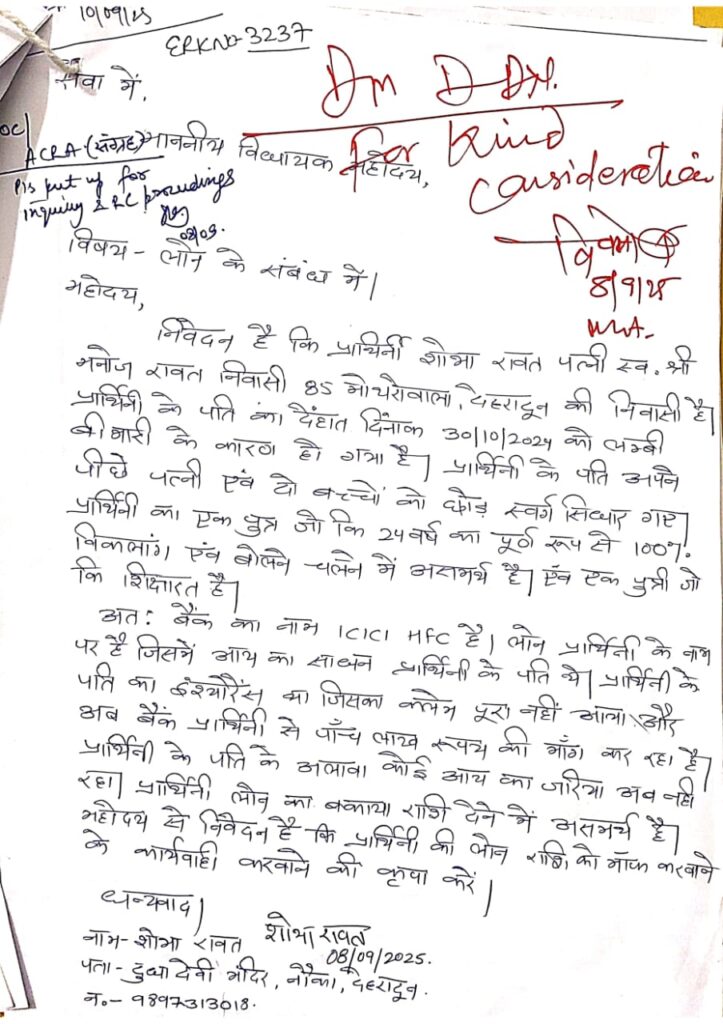 10/09/25
ERK NO- 3237
सेवा में,
Dm D-DN.
For Kind
Consideration
OC/
ACRA-(संग्रह)
Pls put up for
inquiry & RC proceedings
08/09.
माननीय विधायक महोदय,
8/9/25
MLA.
विषय- लोन के संबंध में।
महोदय,
निवेदन है कि प्रार्थिनी शोभा रावत पत्नी स्व. श्री
मनोज रावत निवासी 85 मोथरोवाला, देहरादून की निवासी है।
प्रार्थिनी के पति का देहांत दिनांक 30/10/2024 को लम्बी
बीमारी के कारण हो गया है। प्रार्थिनी के पति अपने
पीछे पत्नी एवं दो बच्चों को छोड़ स्वर्ग सिधार गए।
प्रार्थिनी का एक पुत्र जो कि 24 वर्ष का पूर्ण रूप से 100%
विकलांग एवं बोलने चलने में असमर्थ है। एवं एक पुत्री जो
कि शिक्षारत है।
अत: बैंक का नाम ICICI HFC है। लोन प्रार्थिनी के नाम
पर है जिसमें आय का साधन प्रार्थिनी के पति थे। प्रार्थिनी के
पति का इंश्योरेंस था जिसका क्लेम पूरा नहीं आया और
अब बैंक प्रार्थिनी से पाँच लाख रूपय की माँग कर रहा है।
प्रार्थिनी के पति के अलावा कोई आय का जरिया अब नही
रहा। प्रार्थिनी लोन का बकाया राशि देने में असमर्थ है।
महोदय से निवेदन है कि प्रार्थिनी की लोन राशि को माँफ करवाने
के कार्यवाही करवाने की कृपा करें।
धन्यवाद।
नाम- शोभा रावत शोभा रावत
08/09/2025.
पता- दुधादेवी मंदिर, नौका, देहरादून.
न.- 9897313018.